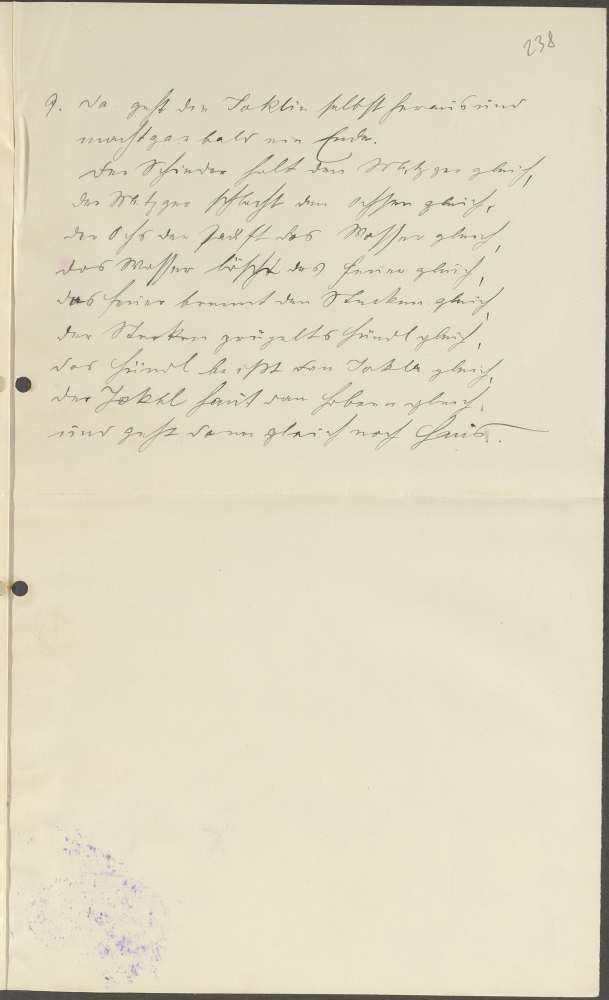 238
9. Da geht der Joklin selbst heraus und
macht gar bald ein Ende.
Der Schinder holt den Metzger gleich,
der Metzger schlacht den Ochsen gleich,
der Ochs der sauft das Wasser gleich,
das Wasser löscht das feuer gleich,
das feuer brennt den Stecken gleich,
der Stecken prügelts hündl gleich,
das hündl beisst den Jokle gleich,
der Jokkl haut den hobern gleich,
und geht dann gleich nach haus.